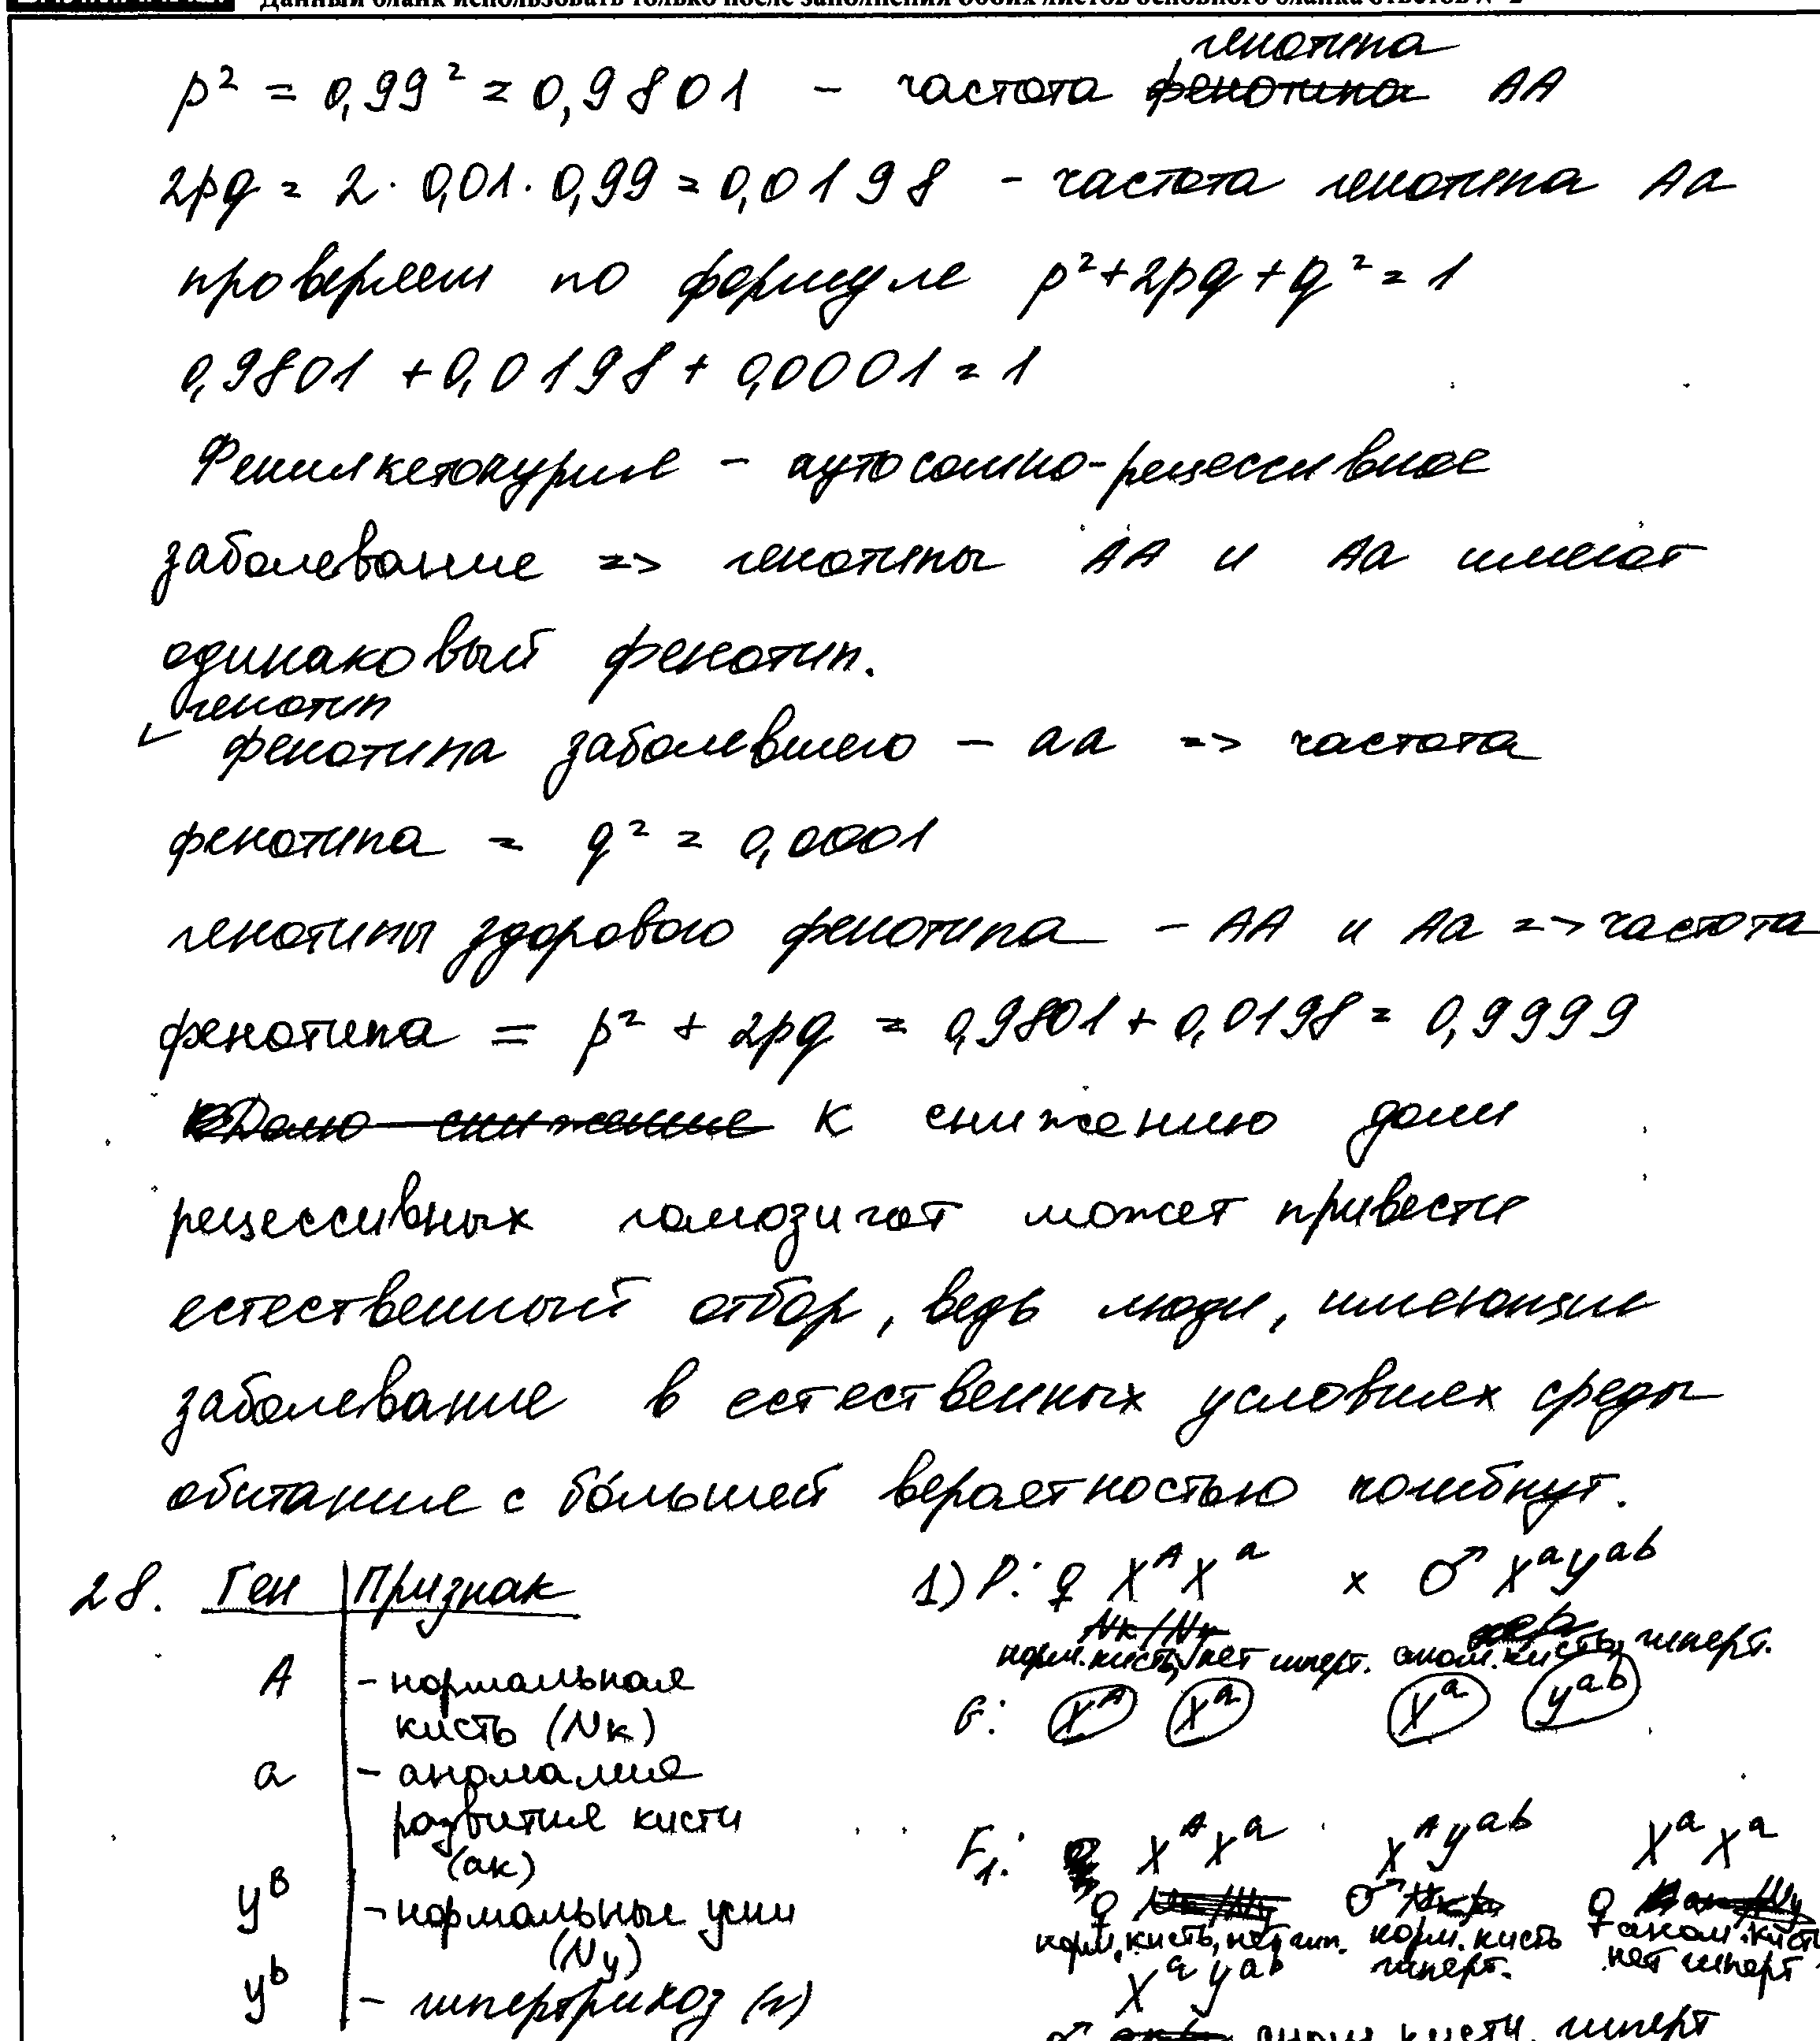 Данный бланк использовать только после заполнения обоих листов основного бланка ответов № 2
генотипа
p² = 0,99² = 0,9801 - частота фенотипа AA
2pq = 2 · 0,01 · 0,99 = 0,0198 - частота генотипа Aa
проверяем по формуле p²+2pq+q²=1
0,9801 + 0,0198 + 0,0001 = 1
Фенилкетонурия - аутосомно-рецессивное
заболевание => генотипы AA и Aa имеют
одинаковый фенотип.
генотип
фенотипа заболевшего - aa => частота
фенотипа = q² = 0,0001
генотипы здорового фенотипа - AA и Aa => частота
фенотипа = p² + 2pq = 0,9801 + 0,0198 = 0,9999
Долю снижение К снижению доли
рецессивных гомозигот может привести
естественный отбор, ведь люди, имеющие
заболевание в естественных условиях среды
обитания с бо́льшей вероятностью погибнут.
28. Ген | Признак
A - нормальная
кисть (Nк)
a - аномалия
развития кисти
(ак)
y^B - нормальные уши
(Nу)
y^b - гипертрихоз (г)
1) P: ♀ X^A X^a × ♂ X^a y^ab
Nк/Nу
норм. кисть, нет гиперт. аном. кисть, гиперт.
G: X^A X^a X^a y^ab
F₁: X^A X^a X^A y^ab X^a X^a
♀ ♂ ♀
норм. кисть, нет гип. норм. кисть аном. кисть
гиперт. нет гиперт
X^a y^ab
♂ аном кисти, гиперт